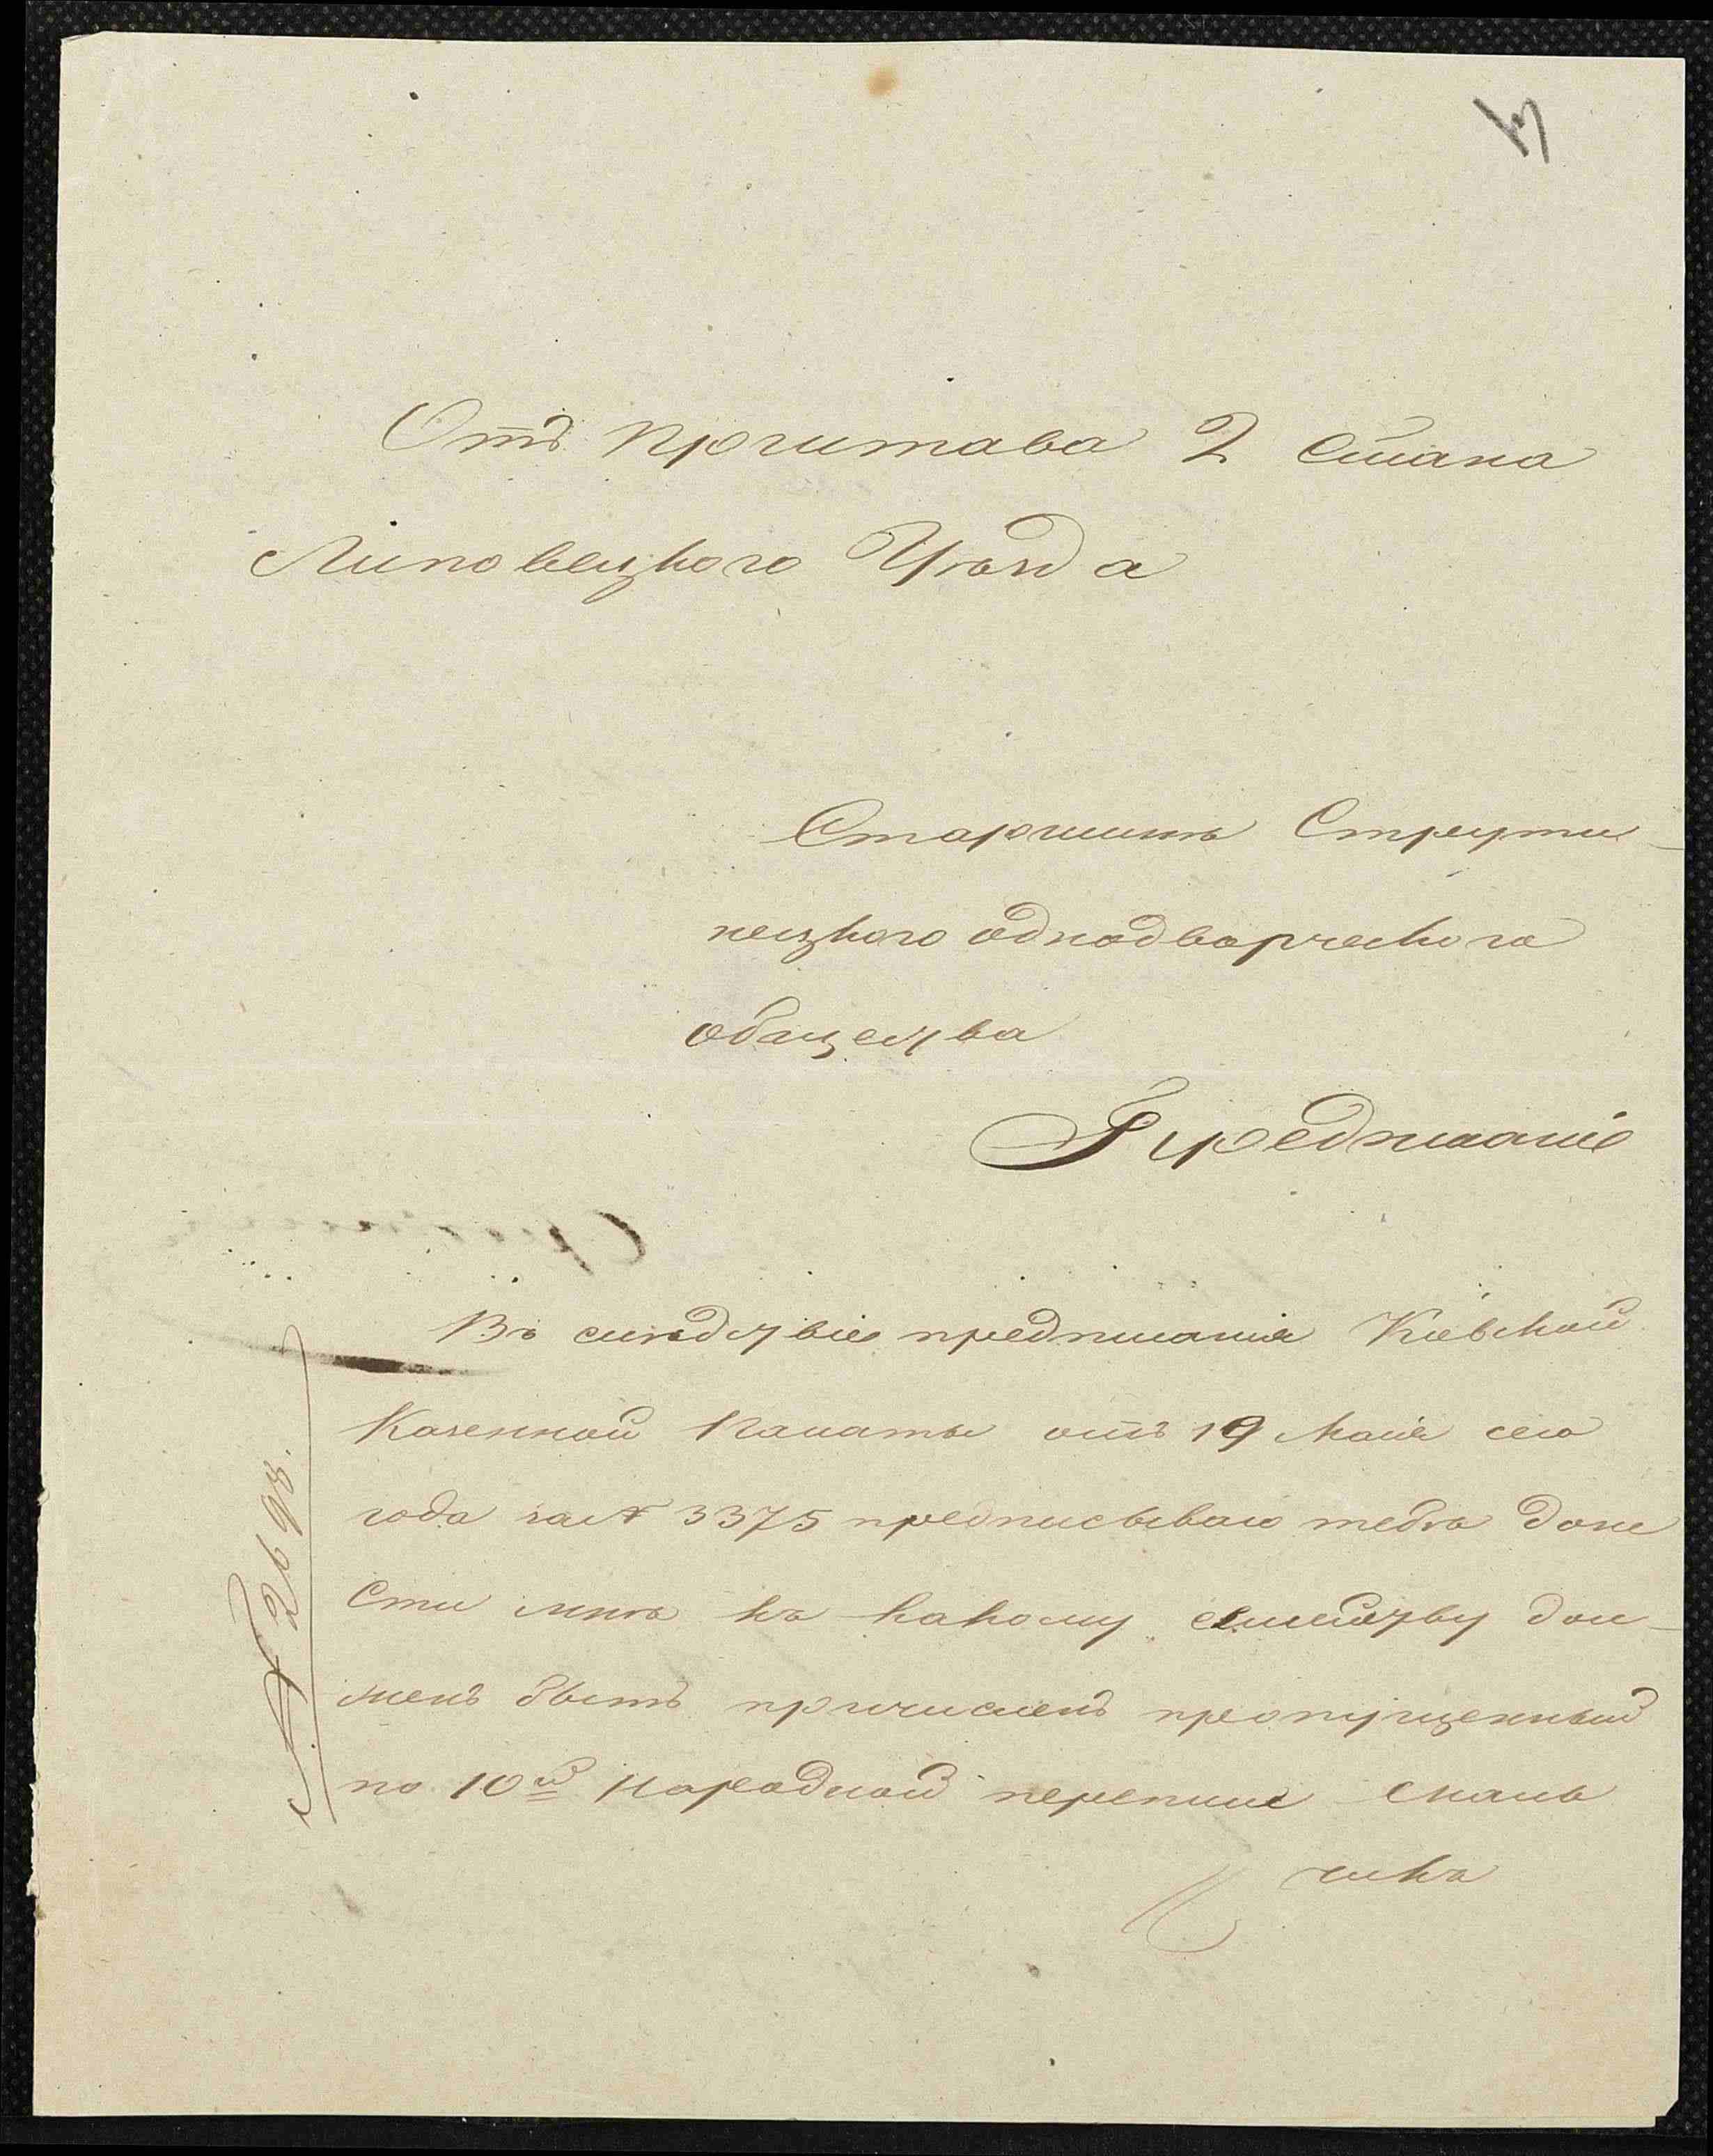 Отъ Пристава 2 Стана
Липовецкаго Уѣзда
Старшинѣ Струти-
нецкого однодворческого
общества
Предписаніе
Въ слѣдствіе предписанія Кіевской
Казенной Палаты отъ 19 Маія сего
года за № 3375 предписываю тебѣ доне
сти мнѣ къ какому семейству дол-
женъ быть причисленъ пропущенный
по 10й народной переписи
№ 2698.